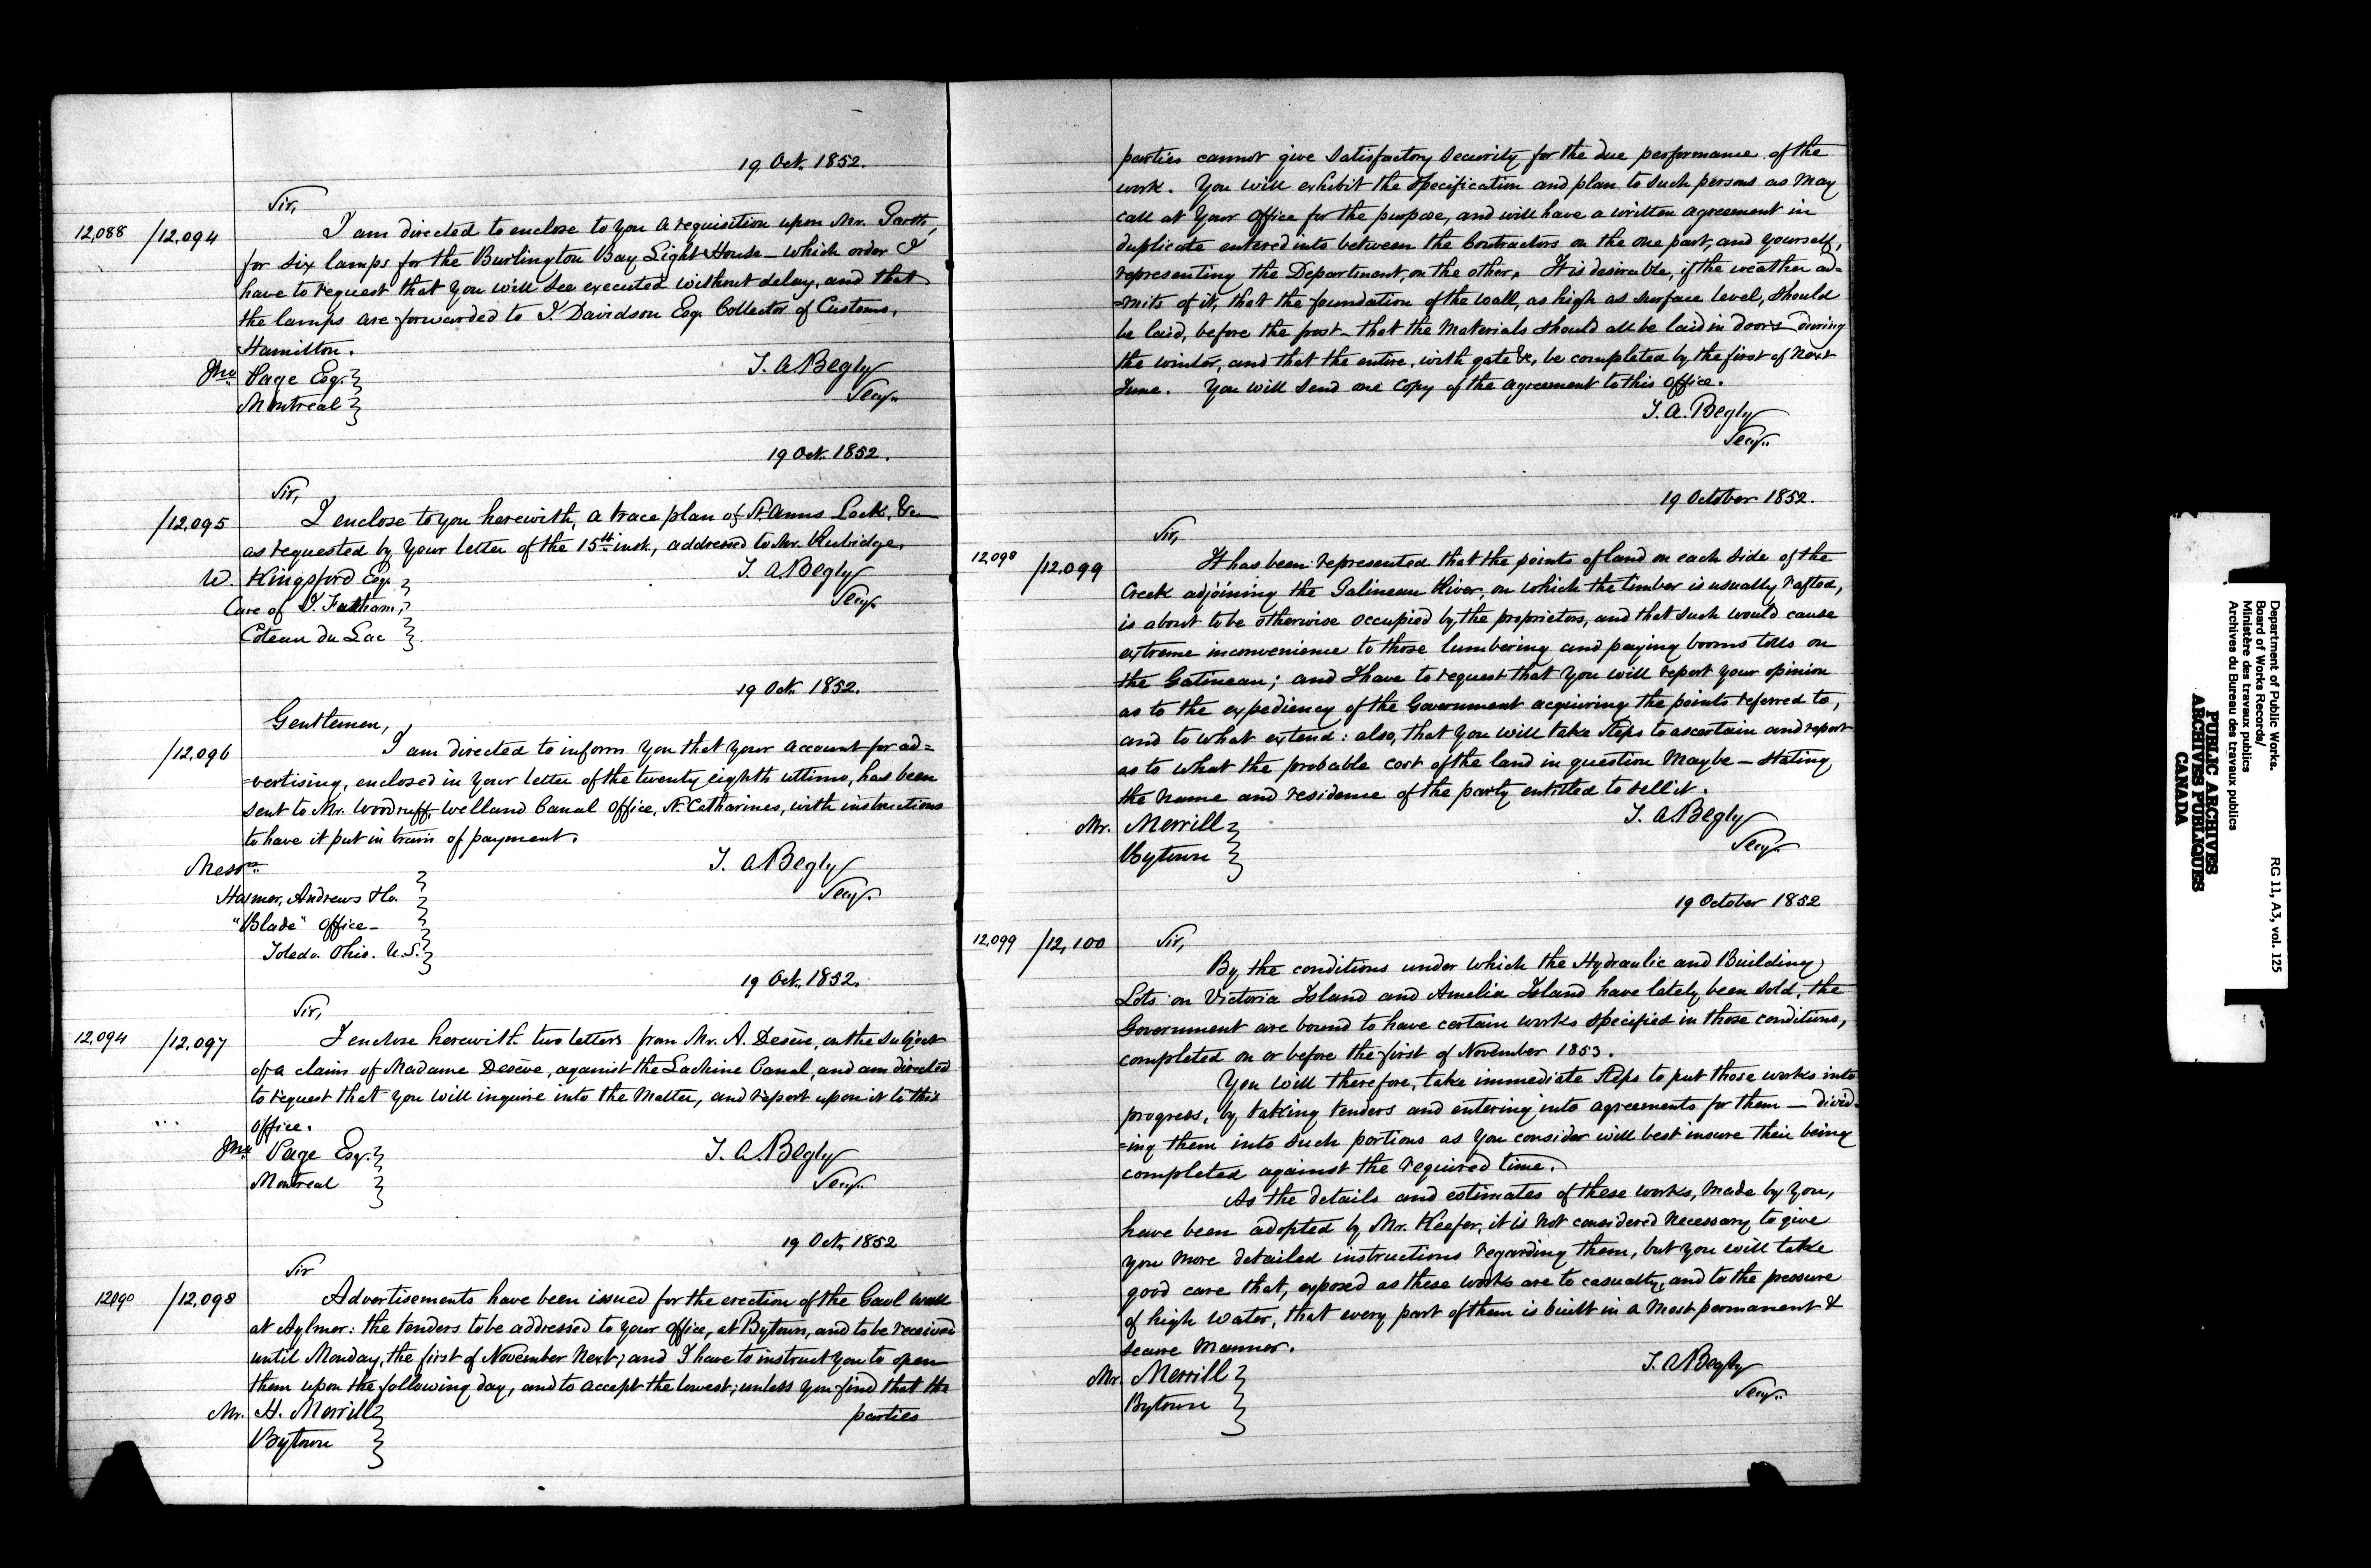 19 Oct. 1852.
Sir,
12,088 /12,094 I am directed to enclose to you a requisition upon Mr. Garth,
for six lamps for the Burlington Bay Light House – which order I
have to request that you will see executed without delay, and that
the lamps are forwarded to J. Davidson Esq. Collector of Customs,
Hamilton.
Jno Page Esq.
Montreal
T. A. Begly
Secy.
19 Oct. 1852.
Sir,
/12,095 I enclose to you herewith, a trace plan of St. Anns Lock, &c
as requested by your letter of the 15th inst., addressed to Mr. Rubidge.
W. Kingsford Esq.
Care of J. Fatham,
Coteau du Lac
T. A. Begly
Secy.
19 Oct. 1852.
Gentlemen,
/12,096 I am directed to inform you that your account for ad=
=vertising, enclosed in your letter of the twenty eighth ultimo, has been
sent to Mr. Woodruff, Welland Canal Office, St. Catharines, with instructions
to have it put in train of payment.
Messrs
Hosmer, Andrews & Co.
"Blade" Office –
Toledo. Ohio. U.S.
T. A. Begly
Secy.
19 Oct. 1852.
Sir,
12,094 /12,097 I enclose herewith two letters from Mr. A. Deséve, on the subject
of a claim of Madame Deséve, against the Lachine Canal, and am directed
to request that you will inquire into the matter, and report upon it to this
office.
Jno Page Esq.
Montreal
T. A. Begly
Secy.
19 Oct. 1852
Sir
12090 /12,098 Advertisements have been issued for the erection of the Gaol wall
at Aylmer: the tenders to be addressed to your office, at Bytown, and to be received
until Monday, the first of November next; and I have to instruct you to open
them upon the following day, and to accept the lowest; unless you find that the
parties
Mr. H. Merrill
Bytown
parties cannot give satisfactory security for the due performance of the
work. You will exhibit the specification and plan to such persons as may
call at your office for the purpose, and will have a written agreement in
duplicate entered into between the Contractors on the one part, and yourself,
representing the Department, on the other. It is desirable, if the weather ad=
=mits of it, that the foundation of the wall, as high as surface level, should
be laid, before the frost – that the materials should all be laid in doors during
the winter, and that the entire, with gate &c, be completed by the first of next
June. You will send one copy of the agreement to this office.
T. A. Begly
Secy.
19 October 1852.
Sir,
12,098 /12,099 It has been represented that the points of land on each side of the
Creek adjoining the Gatineau River, on which the timber is usually rafted,
is about to be otherwise occupied by the proprietors, and that such would cause
extreme inconvenience to those lumbering and paying booms tolls on
the Gatineau; and I have to request that you will report your opinion
as to the expediency of the Government acquiring the points referred to,
and to what extend: also, that you will take steps to ascertain and report
as to what the probable cost of the land in question may be – stating
the name and residence of the party entitled to sell it.
Mr. Merrill
Bytown
T. A. Begly
Secy.
19 October 1852
12,099 /12,100 Sir,
By the conditions under which the Hydraulic and Building
Lots on Victoria Island and Amelia Island have lately been sold, the
Government are bound to have certain works specified in those conditions,
completed on or before the first of November 1853.
You will therefore, take immediate steps to put those works into
progress, by taking tenders and entering into agreements for them – divid=
=ing them into such portions as you consider will best insure their being
completed against the required time.
As the details and estimates of these works, made by you,
have been adopted by Mr. Keefer, it is not considered necessary to give
you more detailed instructions regarding them, but you will take
good care that, exposed as these works are to casualty, and to the pressure
of high water, that every part of them is built in a most permanent &
secure manner.
Mr. Merrill
Bytown
T. A. Begly
Secy.
Department of Public Works.
Board of Works Records/
Ministère des travaux publics
Archives du Bureau des travaux publics
RG 11, A3, vol. 125
PUBLIC ARCHIVES
ARCHIVES PUBLIQUES
CANADA